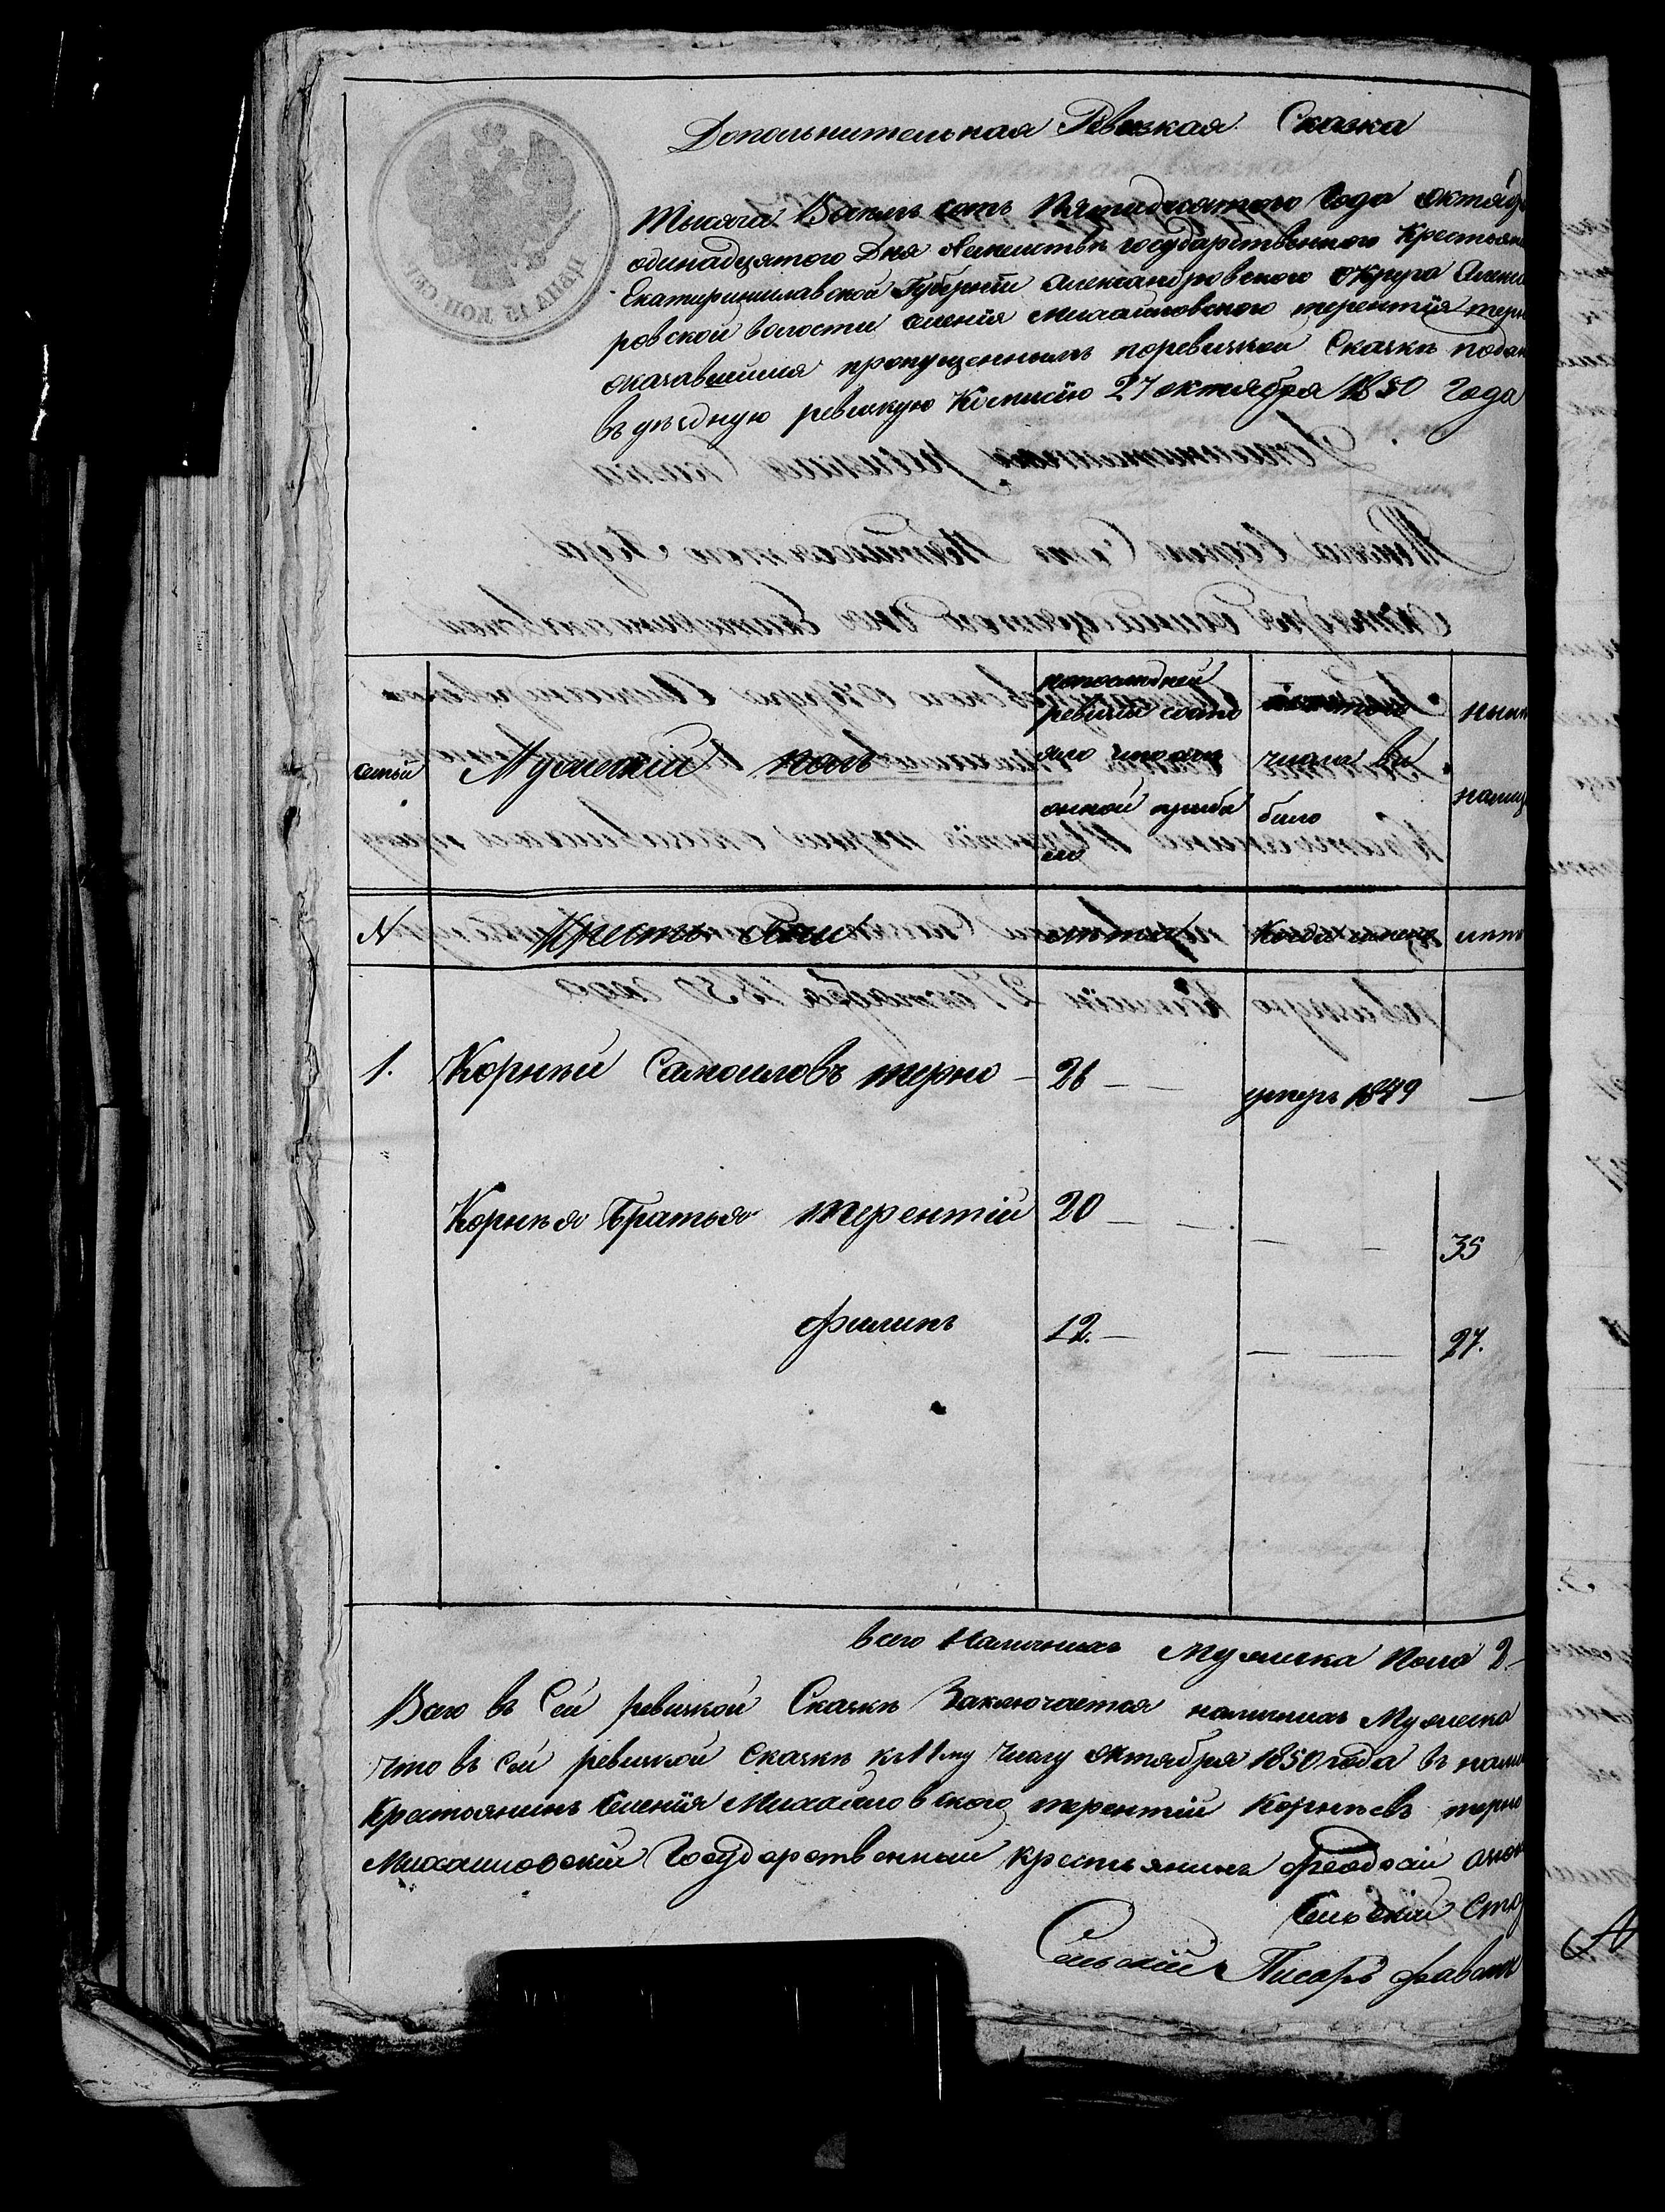 Дополнительная Ревизкая Сказка
Тысяча Восемь сотъ Пятидесятого Года октяб
одинадцятого Дня государственного Крестьян
Екатиринославской Губернїи Александровского округа Алекса
ровской волости селенїя михайловского терентїя терн
оказавшимся пропущеннымъ поревизкой Сказкѣ подан
въ уѣздную ревизкую Комисїю 27 октября 1850 Года
семьи Мужеский полъ
попослѣдней ревизїи состо яло
числа вы было
N
лѣтъ
Когда имено
лѣтъ
1. Корнѣй Самоиловъ терно — 26 — — умеръ 1849 —
Корнѣя Братья терентїй 20 — — — — 35
филипъ 12. — — — 27.
всего Наличныхъ Мужеска Пола 2.
Всего въ Сей ревизкой Сказкѣ Заключается наличныхъ Мужеска
что въ сей ревизкой сказкѣ къ 11му числу октября 1850 года въ нали
Крестьянинъ селенїя Михайловского терентїй Корнѣевъ терно
Михайловский Государственный крестьянинъ феодосїй
Сельский Ста
Сельский Писарь